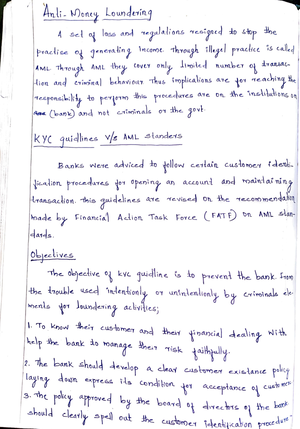 Anti-Money Loundering
A set of loss and regulations resigned to stop the
practise of generating income through illegal practice is called
AML through AML they cover only limited number of transac-
tion and criminal behaviour thus implications are for reaching the
responsibility to perform this procedures are on the institutions on
(bank) and not criminals or the govt.
KYC guidlines v/s AML standers
Banks were adviced to follow certain customer identi-
fication procedures for opening an account and maintaining
transaction this guidelines are revised on the recommendation
made by Financial Action Task Force (FATF) on AML stan-
dards.
Objectives
The objective of kyc guidline is to prevent the bank from
the trouble used intentionly or unintentionly by criminals ele-
ments for loundering activities;
1. To know their customer and their financial dealing with
help the bank to manage their risk faithfully.
2. The bank should develop a clear customer existance policy
laying down express its condition for acceptance of customer
3. The policy approved by the board of directors of the bank
should clearly spell out the customer identification procedure